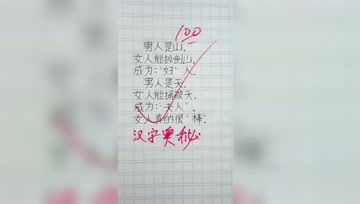 100
男人是山,
女人能扳倒山,
成为:"妇"人。
男人是天,
女人能捅破天,
成为:"夫人"。
女人真的很"棒"。
汉字奥秘